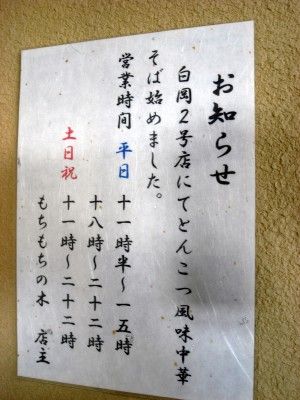 お知らせ
白岡2号店にてとんこつ風味中華
そば始めました。
営業時間 平日 十一時半～一五時
十八時～二十二時
土日祝 十一時～二十二時
もちもちの木 店主